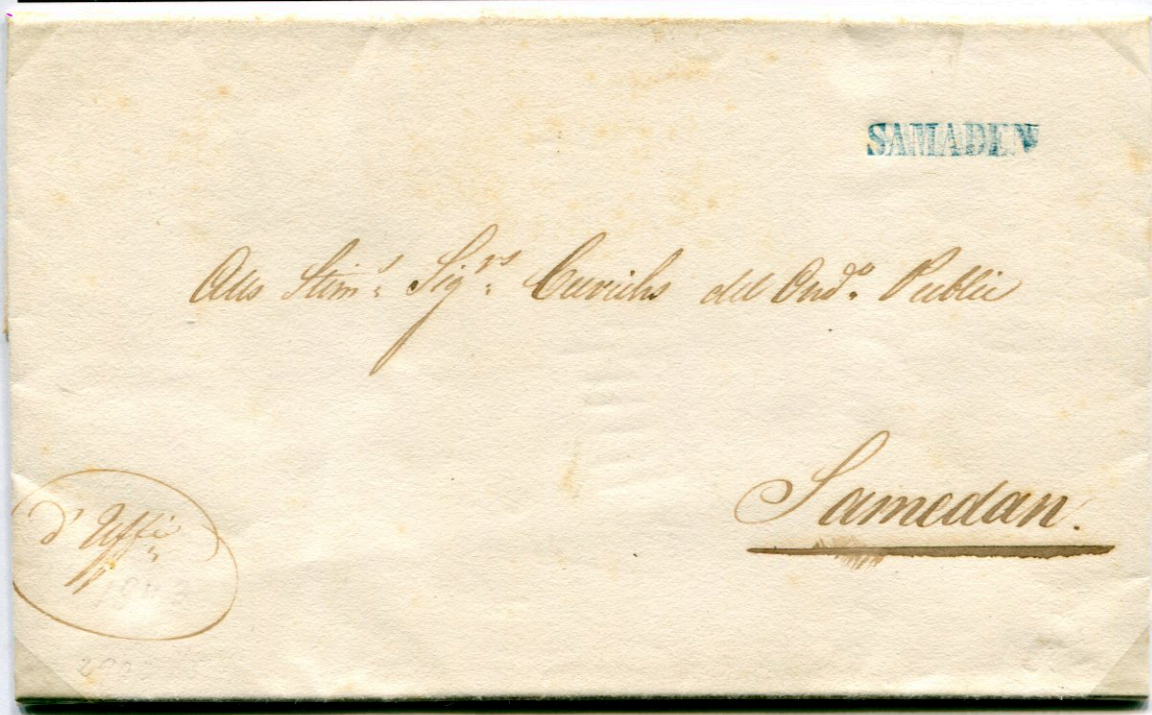 SAMADEN
Alls Stim.s Sig.rs Cuvichs del Ond.o Public
Samedan.
d'Uffi